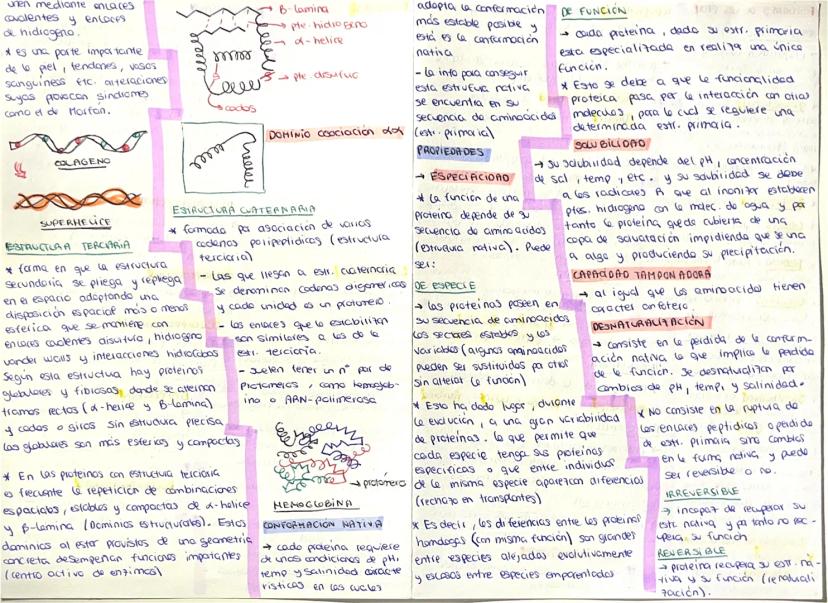 unen mediante enlaces
covalentes y enlaces
de hidrogeno.
* es una parte importante
de la piel, tendones, vasos
sanguineos etc. alteraciones
suyas provocan sindromes
como el de Marfan.
COLAGENO
SUPERHELICE
ESTRUCTURA TERCIARIA
* forma en que la estructura
secundaria se pliega y repliega
en el espacio adoptando una
disposición espacial más o menos
esferica que se mantiene con
enlaces covalentes disulfuro, hidrogeno
vander walls y interacciones hidrofobas
Según esta estructura hay proteinas
globulares y fibrosas, donde se alternan
tramos rectos (α-helice y B-lamina)
y codos o giros sin estructura precisa
Las globulares son más esfericas y compactas
* En las proteinas con estructura terciaria
es frecuente la repetición de combinaciones
espaciales, estables y compactas de α-helice
y B-lamina (Dominios estructurales). Estos
dominios al estar provistos de una geometria
concreta desempeñan funciones importantes
(centro activo de enzimas)
B-lamina
pte. hidrogeno
α-helice
pte. disulfuro
codos
DOMINIO asociación αα
ESTRUCTURA CUATERNARIA
* formada por asociación de varias
cadenas polipeptidicas (estructura
terciaria)
- Las que llegan a estr. cuaternaria
se denominan cadenas oligomericas
y cada unidad es un protomero.
- Los enlaces que la estabilizan
son similares a los de la
estr. terciaria.
- suelen tener un nº par de
protomeros, como hemoglob-
ina o ARN-polimerasa
protómero
HEMOGLOBINA
CONFORMACIÓN NATIVA
→ cada proteina requiere
de unas condiciones de pH,
temp y salinidad caracte
risticas en las cuales
adopta la conformación
más estable posible y
esta es la conformación
nativa
- la info para conseguir
esta estructura nativa
se encuentra en su
secuencia de aminoacidos
(estr. primaria)
PROPIEDADES
→ ESPECIFICIDAD
* la función de una
proteina depende de su
secuencia de aminoacidos
(estructura nativa). Puede
ser:
DE ESPECIE
→ las proteinas poseen en
su secuencia de aminoacidos
los sectores estables y los
variables (algunos aminoacidos
pueden ser sustituidos por otros
sin alterar la función)
* Esto ha dado lugar, durante
la evolución, a una gran variabilidad
de proteinas. lo que permite que
cada especie tenga sus proteinas
especificas y que entre individuos
de la misma especie aparezcan diferencias
(rechazo en transplantes)
* Es decir, las diferencias entre las proteinas
homologas (con misma función) son grandes
entre especies alejadas evolutivamente
y escasas entre especies emparentadas
DE FUNCIÓN
→ cada proteina, dada su estr. primaria
esta especializada en realizar una única
función.
* Esto se debe a que la funcionalidad
proteica pasa por la interacción con otras
moleculas, para lo cual se requiere una
determinada estr. primaria.
SOLUBILIDAD
→ su solubilidad depende del pH, concentración
de sal, temp, etc. y su solubilidad se debe
a los radicales R que al ionizar establecen
ptes. hidrogeno con la molec. de agua y por
tanto la proteina queda cubierta de una
capa de salvatación impidiendo que se una
a algo y produciendo su precipitación.
CAPACIDAD TAMPONADORA
→ al igual que los aminoacidos tienen
caracter anfotero.
DESNATURALIZACIÓN
→ consiste en la perdida de la conform-
ación nativa lo que implica la perdida
de la función. Se desnaturalizan por
cambios de pH, temp. y salinidad.
* No consiste en la ruptura de
los enlaces peptidicos o perdida
de estr. primaria sino cambios
en la forma nativa y puede
ser reversible o no.
IRREVERSIBLE
→ incapaz de recuperar su
estr. nativa y por tanto no rec-
upera su función
REVERSIBLE
→ proteina recupera su estr. na-
tiva y su función (renaturali
zación).